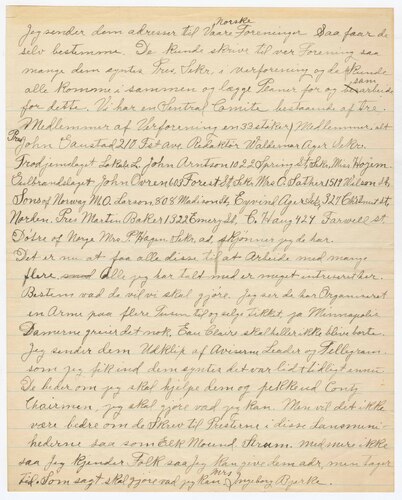 Norske
Jeg sender dem adresser til Vaare Foreninger Saa faar de
selv bestemme. De kunde skrive til ver Forening saa
mange dem syntes Pres, Sekr, i verforening og de kunde
alle komme i sammen og lægge Planer for og
for dette. Vi har en Central Comite bestaaende af tre
Medlemmer af Verforening en 33 stiker Medlemmer, alt
Pres John Ganstad 210 1st Ave Redaktør Waldemar Ager Sekr.
Frodjemslaget Lakels L, John Arntson 1022 Spring St Sekr, Miss Hogim.
John Ovren 603 Forest St Sekr Mrs C. Sather 1519 Nelson St
Sons of Norway M.O. Larson 308 Madison St, Eyvind Ager Sekr, 327 Chestnut St,
Norden. Per Martin Baker 1322 Emery St, C. Haug 424. Farwell St
Døtre af Norge Mrs P. Hagen. Sekr. ad, skjønner jeg de har.
Det er nu at faa alle disse til at Arbeide med mange
flere, Alle jeg har talt med er meget intresseret her.
Bestem vad de vil vi skal gjøre. Jeg ser de har Organiseret
en Arme paa flere Tusen til og selge Tikket paa Minneapolis
Damerne greier det nok, Eau Claire skal heller ikke blive borte.
Jeg sender dem Udklip af Aviserne Leader og Tellegram
som jeg fik ind dem syntes det var lidt tidligt ennu
De beder om jeg skal hjelpe dem og fikk ud County
Chairmen, jeg skal gjøre vad jeg kan. Men vil det ikke
vere bedre om de Skrev til Presterne i disse Landsmen
hederne saa som Elk Mound, Strum. med mere ikke
saa Jeg kjender Folk saa jeg kan give dem adr, men tager
tid. Som sagt skal gjøre vad jeg kan Mrs Ingeborg Bjerke.